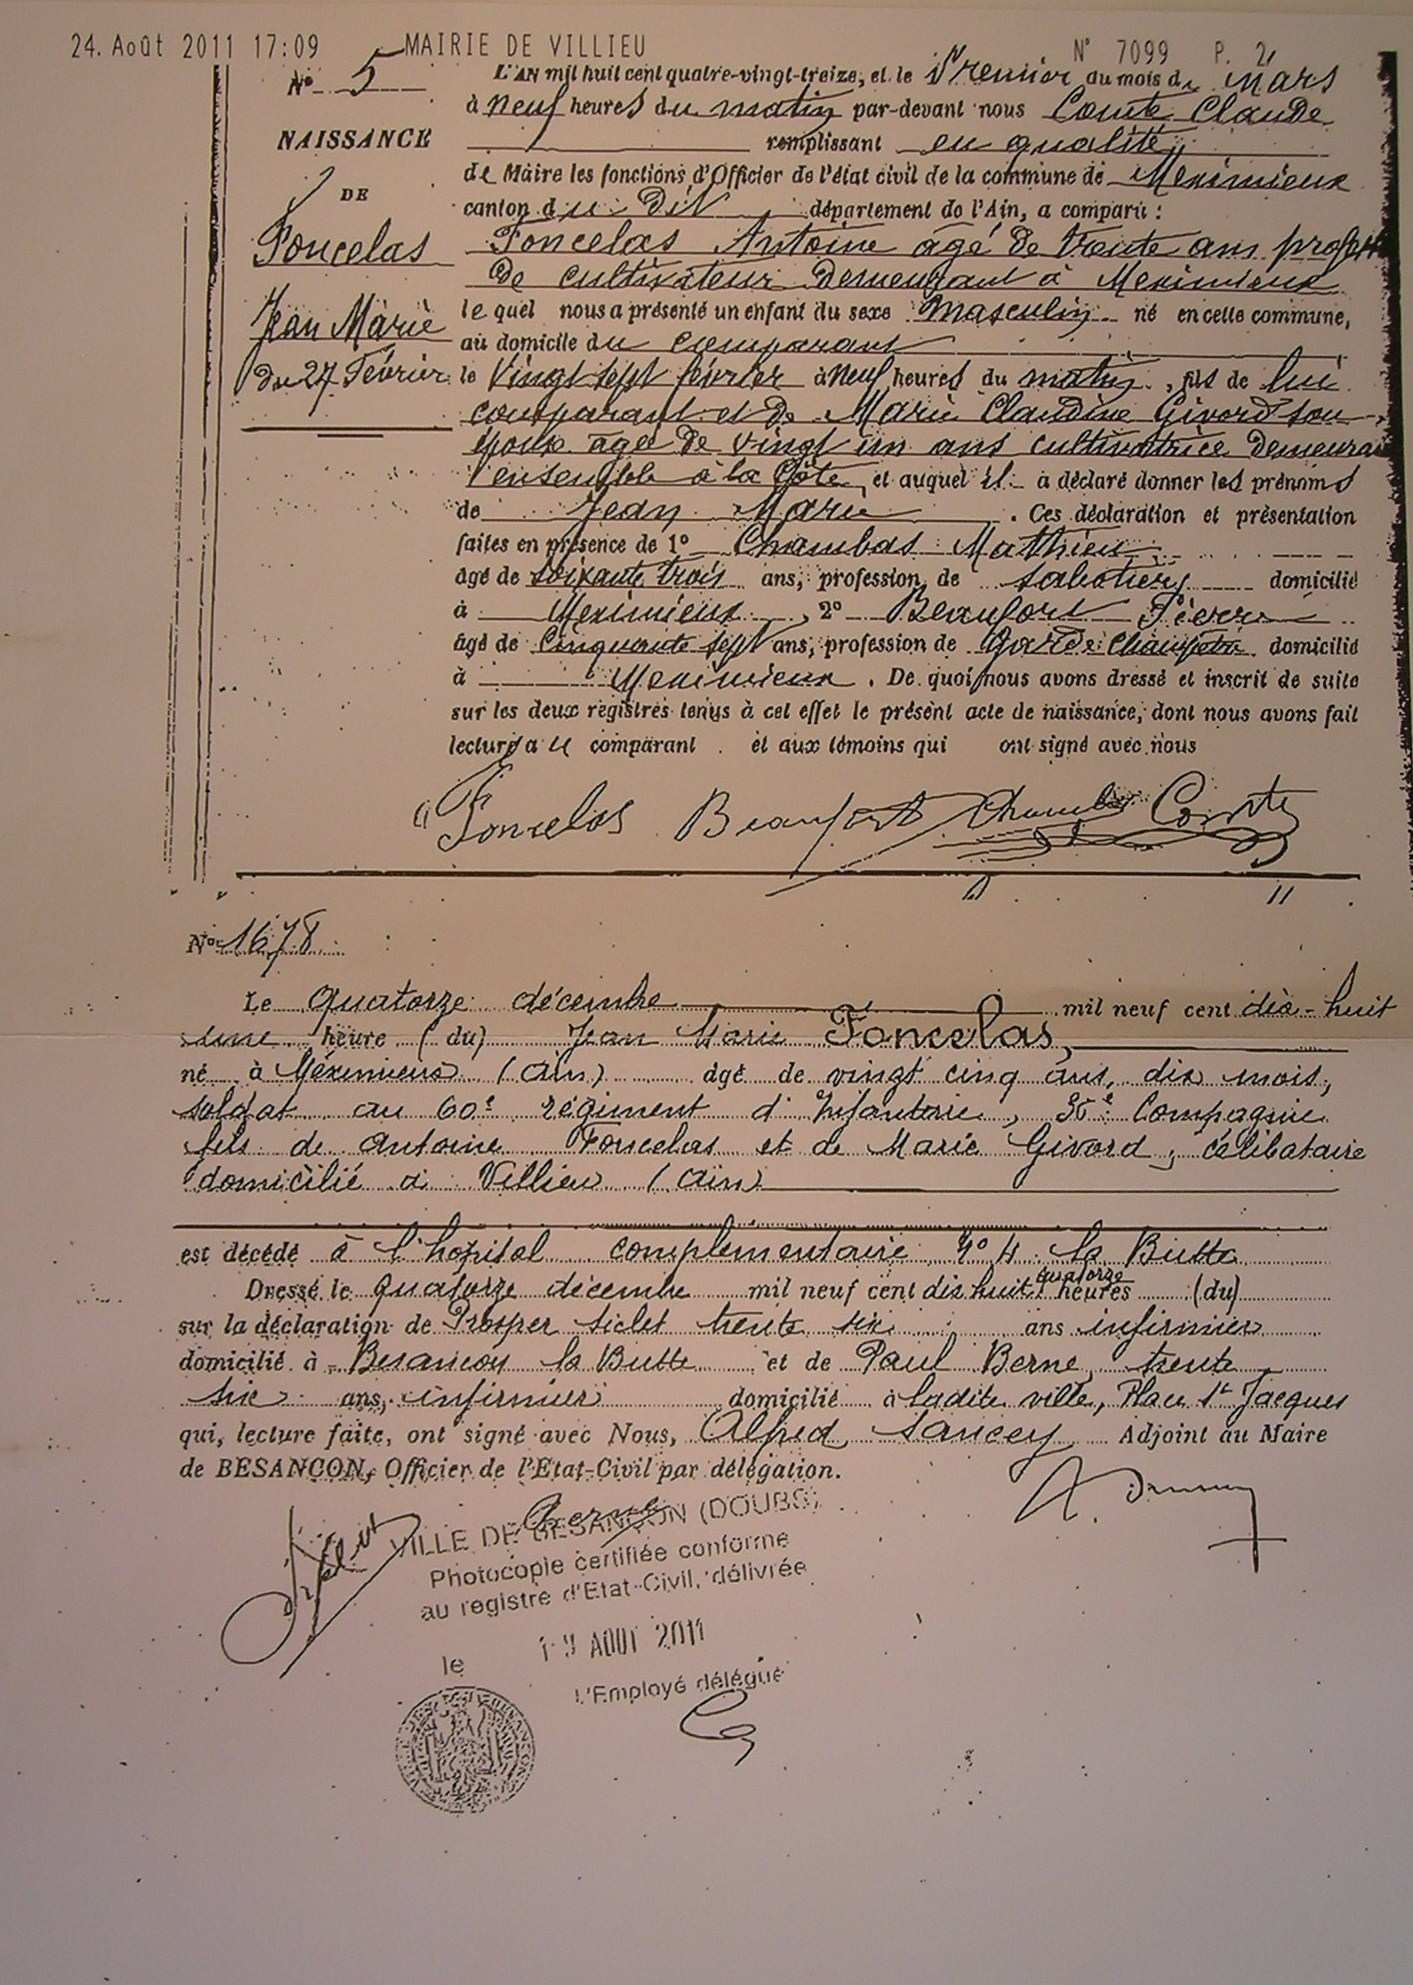 24. Août 2011 17:09 MAIRIE DE VILLIEU N° 7099 P. 2
N° 5
NAISSANCE
DE
Foncelas
Jean Marie
du 27 Février
L'AN mil huit cent quatre-vingt-treize, et le Premier du mois de mars
à neuf heures du matin par-devant nous Comte Claude
remplissant en qualité
de Maire les fonctions d'Officier de l'état civil de la commune de Meximieux
canton du dit département de l'Ain, a comparu :
Foncelas Antoine agé de trente ans profess
de cultivateur demeurant à Meximieux
le quel nous a présenté un enfant du sexe masculin né en cette commune,
au domicile du comparant
le vingt sept février à neuf heures du matin, fils de lui
comparant et de Marie Claudine Givord son
épouse agée de vingt un ans cultivatrice demeurant
ensemble à la Côte, et auquel il a déclaré donner les prénoms
de Jean Marie. Ces déclaration et présentation
faites en présence de 1° Chambas Mathieu
âgé de soixante trois ans, profession de sabotier domicilié
à Meximieux, 2° Beaufort Pierre
âgé de cinquante sept ans, profession de Garde Champêtre domicilié
à Meximieux. De quoi nous avons dressé et inscrit de suite
sur les deux registres tenus à cet effet le présent acte de naissance, dont nous avons fait
lecture au comparant et aux témoins qui ont signé avec nous
Foncelas Beaufort Chambas Comte
N° 1678
Le quatorze décembre mil neuf cent dix-huit
une heure (du) Jean Marie Foncelas,
né à Méximieux (Ain) âgé de vingt cinq ans, dix mois,
soldat au 60e régiment d'Infanterie, 36e Compagnie
fils de Antoine Foncelas et de Marie Givord, célibataire
domicilié à Villieu (Ain)
est décédé à l'hopital complémentaire N° 4 la Butte
Dressé le quatorze décembre mil neuf cent dix huit quatorze heures (du)
sur la déclaration de Prosper Siclet trente six ans infirmier
domicilié à Besançon la Butte et de Paul Berne, trente
six ans, infirmier domicilié à ladite ville, Place St Jacques
qui, lecture faite, ont signé avec Nous, Alfred Sancey Adjoint au Maire
de BESANÇON, Officier de l'Etat-Civil par délégation.
Berne
VILLE DE BESANÇON (DOUBS)
Photocopie certifiée conforme
au registre d'Etat-Civil, délivrée
le 19 AOUT 2011
L'Employé délégué